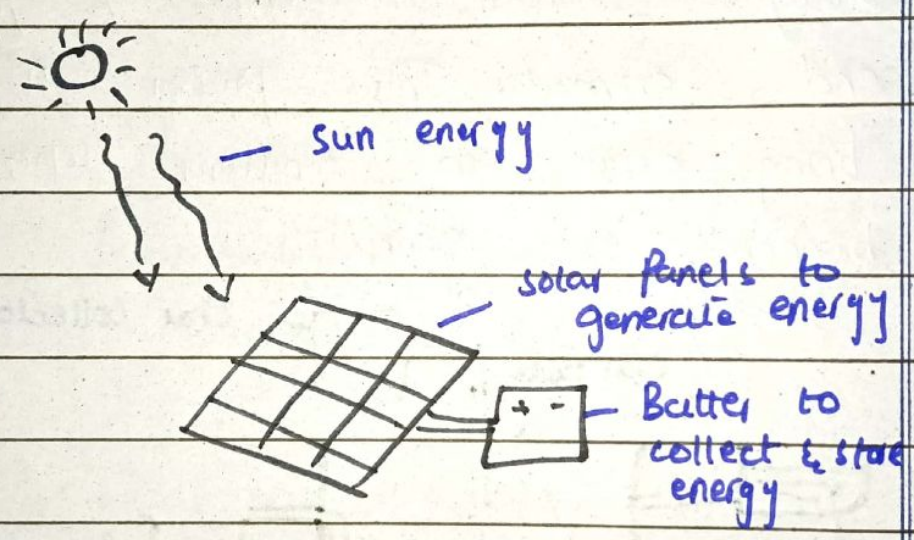 sun energy
solar Panels to
generate energy
+ -
Batter to
collect & store
energy